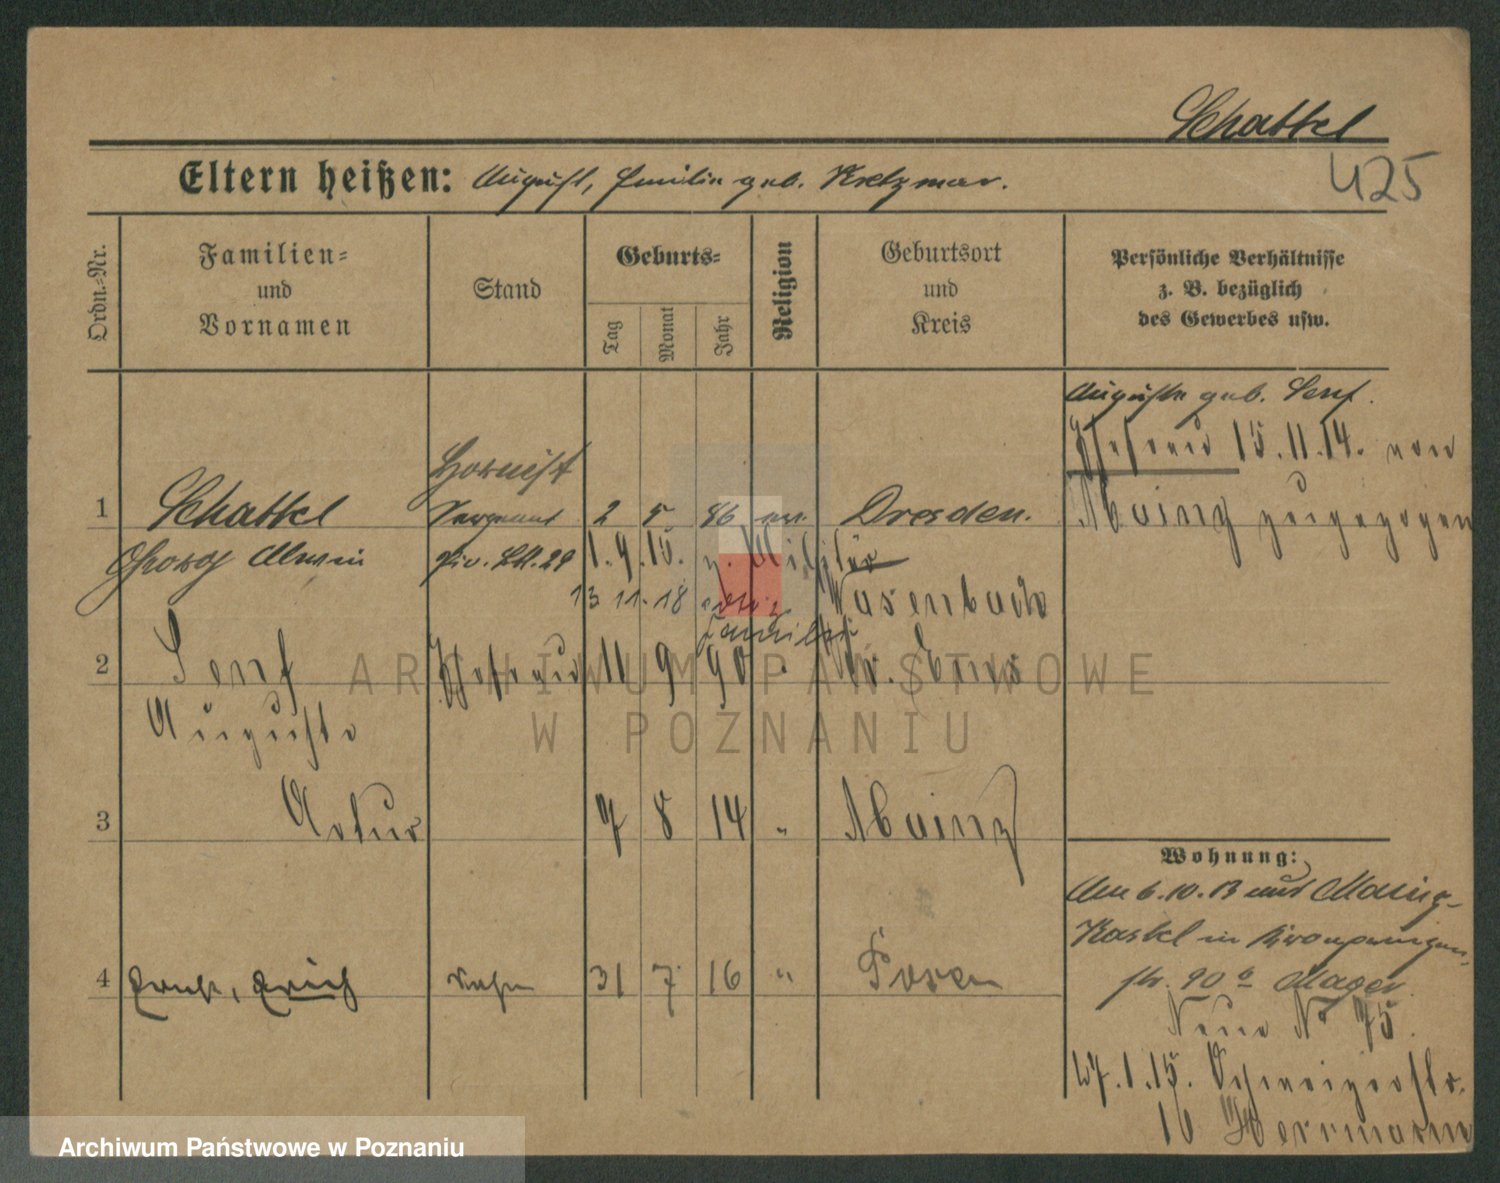 Schattel
425
Eltern heißen: August, Emilie geb. Kretzmar.
Ordn.-Nr.
Familien-
und
Vornamen
Stand
Geburts-
Tag
Monat
Jahr
Religion
Geburtsort
und
Kreis
Persönliche Verhältnisse
z. B. bezüglich
des Gewerbes usw.
Auguste geb. Senf.
Ehefrau 15.11.14. von
Mainz zugezogen
Hornist
1 Schattel Sergeant 2 5 86 ev. Dresden.
Georg Alwin 1.9.15. z. Militär
13 11. 18 Wasenbach
Familie
2 Senf Ehefrau 11 9 90 " Kr.
Auguste
3 Artur 7 8 14 " Mainz
4 Ernst, Erich Sohn 31 7 16 " Posen
Wohnung:
Am 6.10.13 aus Mainz-
Kastel in
str. 90 b Mager
Neue No 75.
27.1.15. Schweizerstr.
16 Herrmann
ARCHIWUM PAŃSTWOWE
W POZNANIU
Archiwum Państwowe w Poznaniu